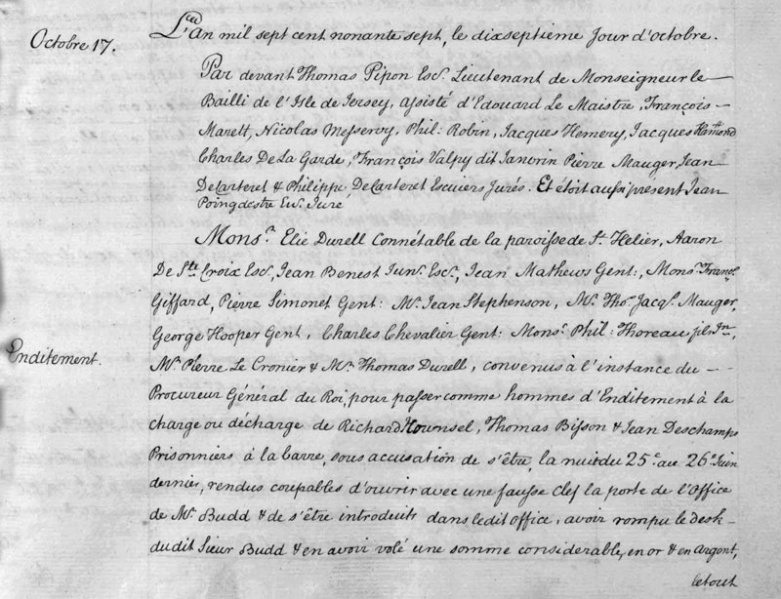 Octobre 17.
L'an mil sept cent nonante sept, le dixseptieme Jour d'octobre.
Par devant Thomas Pipon Esc.r Lieutenant de Monseigneur le
Bailli de l'Isle de Jersey, assisté d'Edouard Le Maistre, François
Marett, Nicolas Messervy, Phil: Robin, Jacques Hemery, Jacques Hamond
Charles De La Garde, François Valpy dit Janvrin Pierre Mauger, Jean
De Carteret & Philippe De Carteret Escuiers Jurés. Et étoit aussi present Jean
Poingdestre Esc.r Juré
Mons.r Elie Durell Connétable de la paroisse de S.t Helier, Aaron
De S.te Croix Esc.r, Jean Benest Jun.r Esc.r, Jean Mathews Gent:, Mons.r Fran.s
Giffard, Pierre Simonet Gent: M.r Jean Stephenson, M.r Tho.s Jacq.s Mauger,
George Hooper Gent, Charles Chevalier Gent: Mons.r Phil: Thoreau fils J.n,
Enditement.
M.r Pierre Le Cronier & M.r Thomas Durell, convenus à l'instance du
Procureur Général du Roi, pour passer comme hommes d'Enditement à la
charge ou décharge de Richard Hounsel, Thomas Bisson & Jean Deschamps
Prisonniers à la barre, sous accusation de s'être, la nuit du 25.e au 26.e Juin
dernier, rendus coupables d'ouvrir avec une fausse clef la porte de l'Office
de M.r Budd & de s'être introduits dans ledit office, avoir rompu le desk
dudit Sieur Budd & en avoir volé une somme considerable, en or & en Argent,
le tout